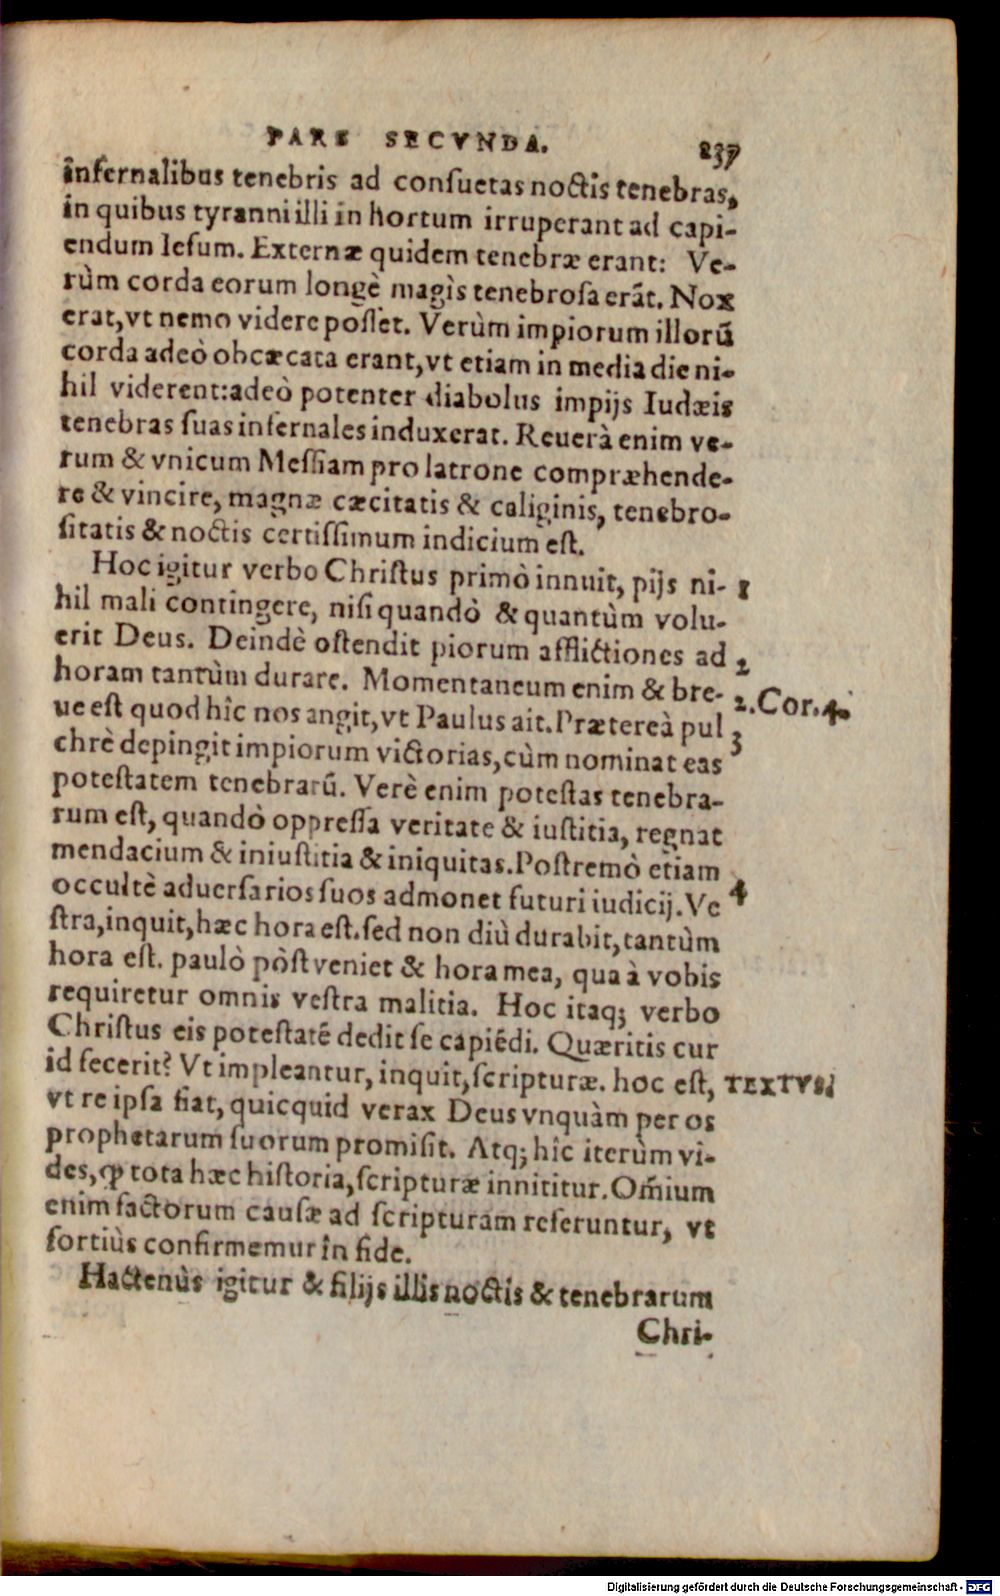 PARS SECVNDA. 237
infernalibus tenebris ad conſuetas noctis tenebras,
in quibus tyranni illi in hortum irruperant ad capi-
endum Ieſum. Externæ quidem tenebræ erant: Ve-
rùm corda eorum longè magìs tenebroſa erāt. Nox
erat, vt nemo videre poſſet. Verùm impiorum illorū
corda adeò obcæcata erant, vt etiam in media die ni-
hil viderent: adeò potenter diabolus impijs Iudæis
tenebras ſuas infernales induxerat. Reuerà enim ve-
rum & vnicum Meſſiam pro latrone compræhende-
re & vincire, magnæ cæcitatis & caliginis, tenebro-
ſitatis & noctis certiſſimum indicium eſt.
Hoc igitur verbo Chriſtus primò innuit, pijs ni- 1
hil mali contingere, niſi quandò & quantùm volu-
erit Deus. Deindè oſtendit piorum afflictiones ad 2
horam tantùm durare. Momentaneum enim & bre-
ue eſt quod hîc nos angit, vt Paulus ait. Prætereà pul 2. Cor. 4.
chrè depingit impiorum victorias, cùm nominat eas 3
poteſtatem tenebrarū. Verè enim poteſtas tenebra-
rum eſt, quandò oppreſſa veritate & iuſtitia, regnat
mendacium & iniuſtitia & iniquitas. Poſtremò etiam
occultè aduerſarios ſuos admonet futuri iudicij. Ve 4
ſtra, inquit, hæc hora eſt. ſed non diù durabit, tantùm
hora eſt. paulò pòſt veniet & hora mea, qua à vobis
requiretur omnis veſtra malitia. Hoc itaq; verbo
Chriſtus eis poteſtatē dedit ſe capiēdi. Quæritis cur
id fecerit? Vt impleantur, inquit, ſcripturæ. hoc eſt, TEXTVS.
vt re ipſa fiat, quicquid verax Deus vnquàm per os
prophetarum ſuorum promiſit. Atq; hîc iterùm vi-
des, ꝙ tota hæc hiſtoria, ſcripturæ innititur. Om̄ium
enim factorum cauſæ ad ſcripturam referuntur, vt
fortiùs confirmemur in fide.
Hactenùs igitur & filijs illis noctis & tenebrarum
Chri-
Digitalisierung gefördert durch die Deutsche Forschungsgemeinschaft - DFG